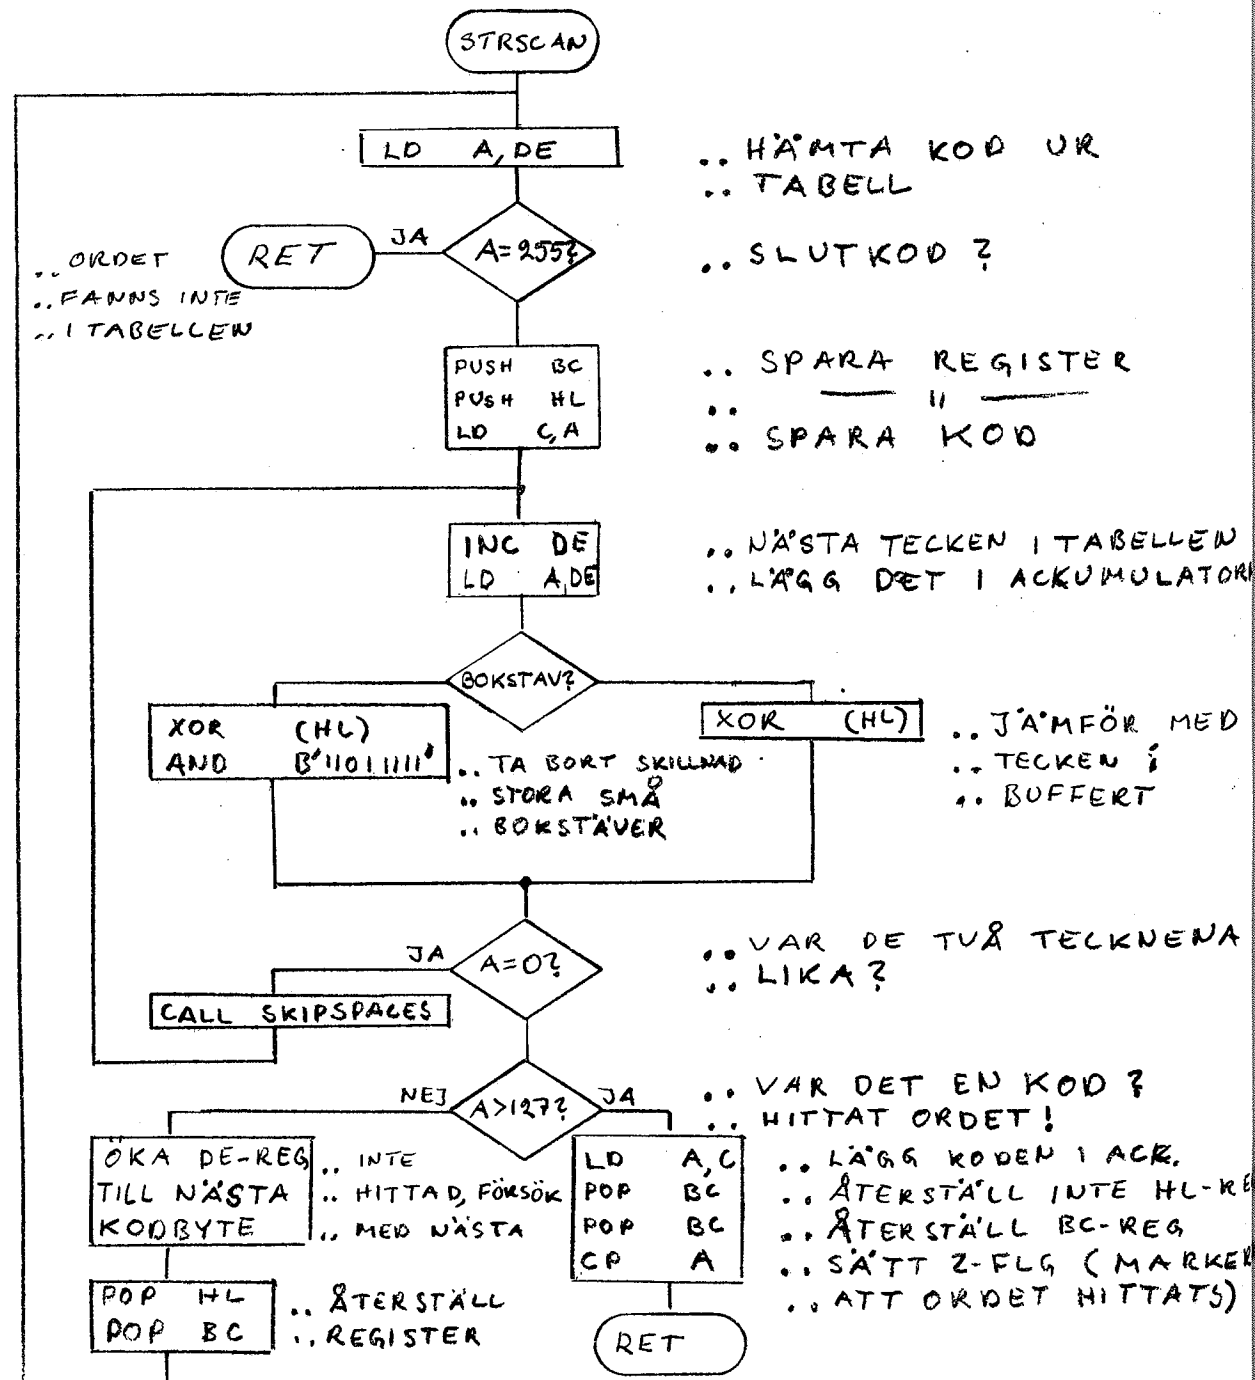 STRSCAN
LD A,DE
.. HÄMTA KOD UR
.. TABELL
A=255?
JA
RET
.. ORDET
.. FANNS INTE
.. I TABELLEN
.. SLUTKOD ?
PUSH BC
PUSH HL
LD C,A
.. SPARA REGISTER
.. —— " ——
.. SPARA KOD
INC DE
LD A,DE
.. NÄSTA TECKEN I TABELLEN
.. LÄGG DET I ACKUMULATOR
BOKSTAV?
XOR (HL)
AND B'11011111'
.. TA BORT SKILLNAD
.. STORA SMÅ
.. BOKSTÄVER
XOR (HL)
.. JÄMFÖR MED
.. TECKEN i
.. BUFFERT
A=0?
JA
.. VAR DE TVÅ TECKNENA
.. LIKA?
CALL SKIPSPACES
A>127?
NEJ
JA
.. VAR DET EN KOD ?
.. HITTAT ORDET!
ÖKA DE-REG
TILL NÄSTA
KODBYTE
.. INTE
.. HITTAD, FÖRSÖK
.. MED NÄSTA
LD A,C
POP BC
POP BC
CP A
.. LÄGG KODEN I ACK.
.. ÅTERSTÄLL INTE HL-RE
.. ÅTERSTÄLL BC-REG
.. SÄTT Z-FLG (MARKER
.. ATT ORDET HITTATS)
POP HL
POP BC
.. ÅTERSTÄLL
.. REGISTER
RET